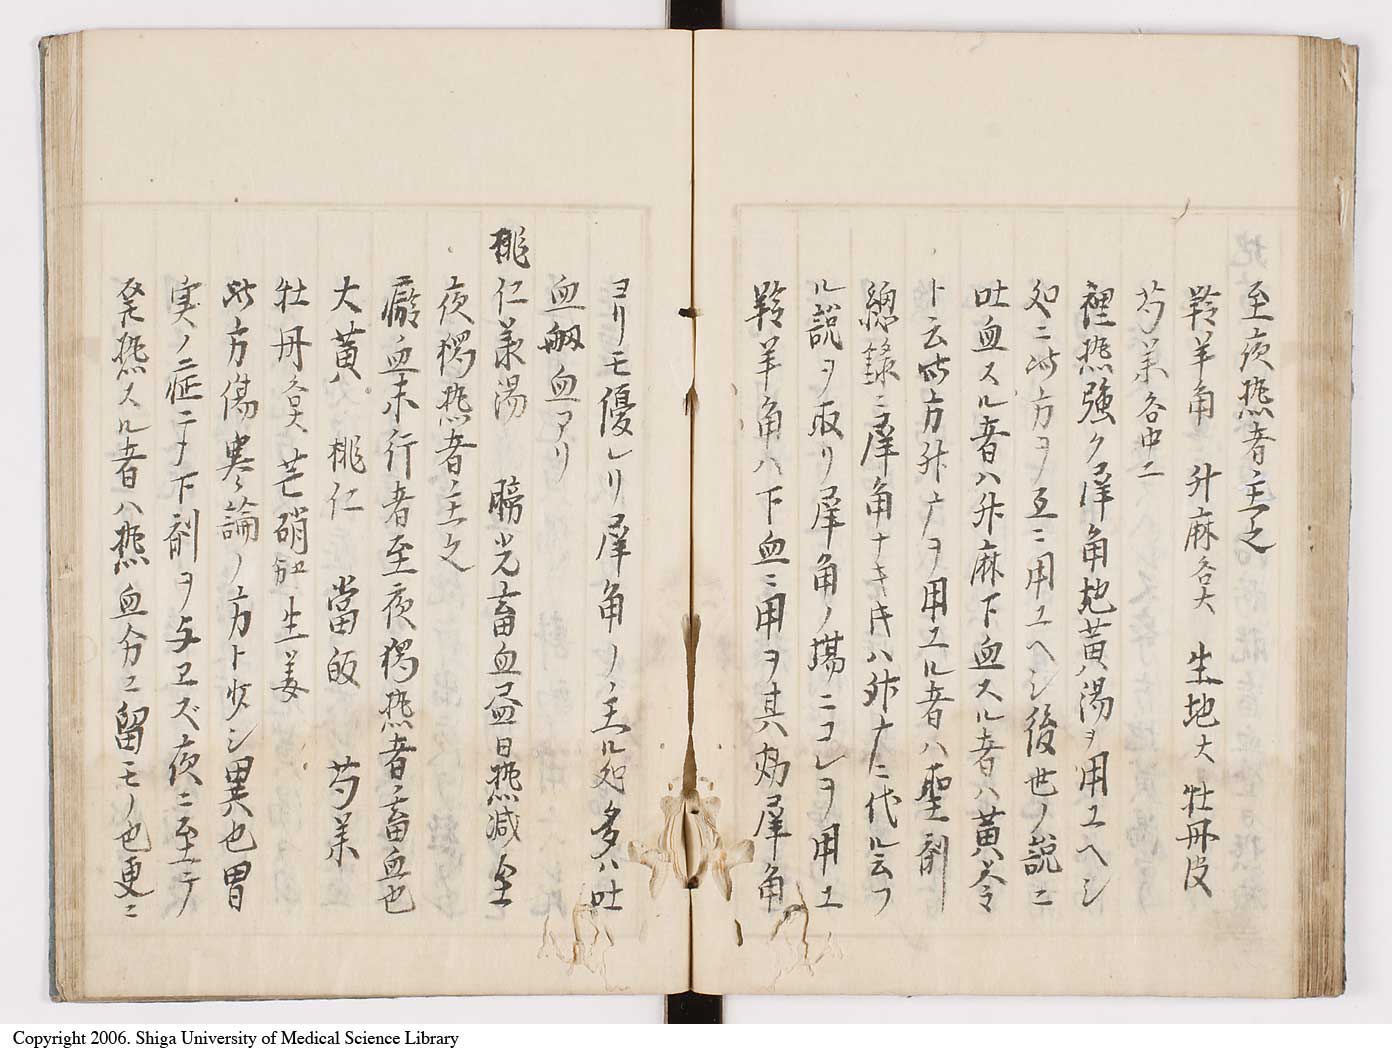 至夜熱者主之
羚羊角 升麻各大 生地大 牡丹皮
芍薬各中二
裡熱強ク犀角地黄湯ヲ用エヘシ
処ニ此方ヲ互ニ用エヘシ後世ノ説ニ
吐血スル者ハ升麻下血スル者ハ黄芩
ト云此方升广ヲ用エル者ハ聖剤
總録ニ犀角ナキ片ハ升广ニ代ル云フ
ル説ヲ取リ犀角ノ場ニコレヲ用エ
羚羊角ハ下血ニ用ヲ其効犀角
ヨリモ優レリ犀角ノ主ル処多ハ吐
血衂血アリ
桃仁承湯 膀光畜血昼日熱減至
夜獨熱者主之
癥血未行者至夜獨熱者畜血也
大黄 桃仁 當皈 芍薬
牡丹各大 芒硝 生姜
此方傷寒論ノ方ト少シ異也胃
実ノ症ニテ下剤ヲ与エズ夜ニ至テ
発熱スル者ハ熱血分ニ留モノ也更ニ
Copyright 2006. Shiga University of Medical Science Library